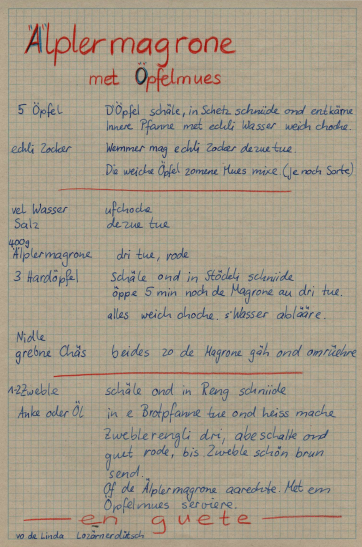 Älplermagrone
met Öpfelmues
5 Öpfel D'Öpfel schäle, in Schetz schniide ond entkärne
Innere Pfanne met echli Wasser weich choche.
echli Zocker Wemmer mag echli Zocker dezue tue.
Die weiche Öpfel zomene Mues mixe (je noch Sorte)
vel Wasser ufchoche
Salz dezue tue
400g
Älplermagrone dri tue, rode
3 Hardöpfel Schäle ond in Stöckli schniide
öppe 5 min noch de Magrone au dri tue.
alles weich choche. s'Wasser abläare.
Nidle
grebne Chäs beides zo de Magrone gäh ond omrüehre
1-2 Zweble schäle ond in Reng schniide
Anke oder Öl in e Brotpfanne tue ond heiss mache
Zweblerengli dri, abeschalte ond
guet rode, bis Zweble schön brun
send.
Of de Älplermagrone aarechte. Met em
Öpfelmues serviere.
en guete
vo de Linda Lozärnerdütsch